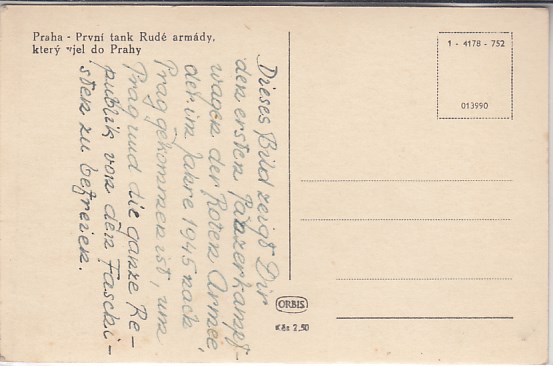 Praha - První tank Rudé armády,
který vjel do Prahy
Dieses Bild zeigt Dir
den ersten Panzerkampf-
wagen der Roten Armee,
der im Jahre 1945 nach
Prag gekommen ist, um
Prag und die ganze Re-
publik von den Faschi-
sten zu befreien.
1 - 4178 - 752
013990
ORBIS
Kčs 2,50